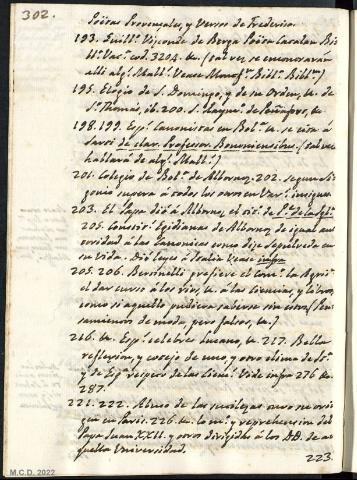 302.
Poëtas Provenzales, y Versos de Frederico.
193. Guillº Visconte de Berga Poëta Catalan Bi
blª Vatª cod. 3204. &ª (tal vez se encontraran
alli algª Mallª. Vease Monfº Biblª Biblm)
195. Elogio de S. Domingo, y de su Orden, &ª de
Sº Thomás, ib. 200. S. Raymº de Peñafort, &ª
198.199. Espª Canonistas en Bolª &ª se cita á
Sarti de clar. Professor. Bononiensibus. (tal vez
hablará de algº Mallª)
201. Colegio de Bolª de Albornoz. 202. segun Si
gonio supera á todos los otros en Varª insignes
203. El Papa dió á Albornoz el titº de Pº de la Iglª
205. Constitª Egidianas de Albornoz de igual au
toridad a las Canonicas como dije Sepulveda en
su Vida. Dió Leyes á Italia Vease infra
205. 206. Bettinelli prefiere el Comº la Agriª
el dar curso á los rios, &ª á las Ciencias, y Libros,
como si aquello pudiera saberse sin estos. (Pen
samientos de moda, pero falsos, &ª)
216. &ª Espª celebres Lucano, &ª 217. Bella
reflexion, y cotejo de uno, y otro clima de Itª
y de Espª respeto de las Cienª. Vide infra 276. &ª
287.
221. 222. Abuso de las sutilezas tuvo su orig
gen en Paris. 226. &ª
Papa Juan XXII. y otros dirigidas á los DD. de a
quella Universidad.
223.
M.C.D. 2022